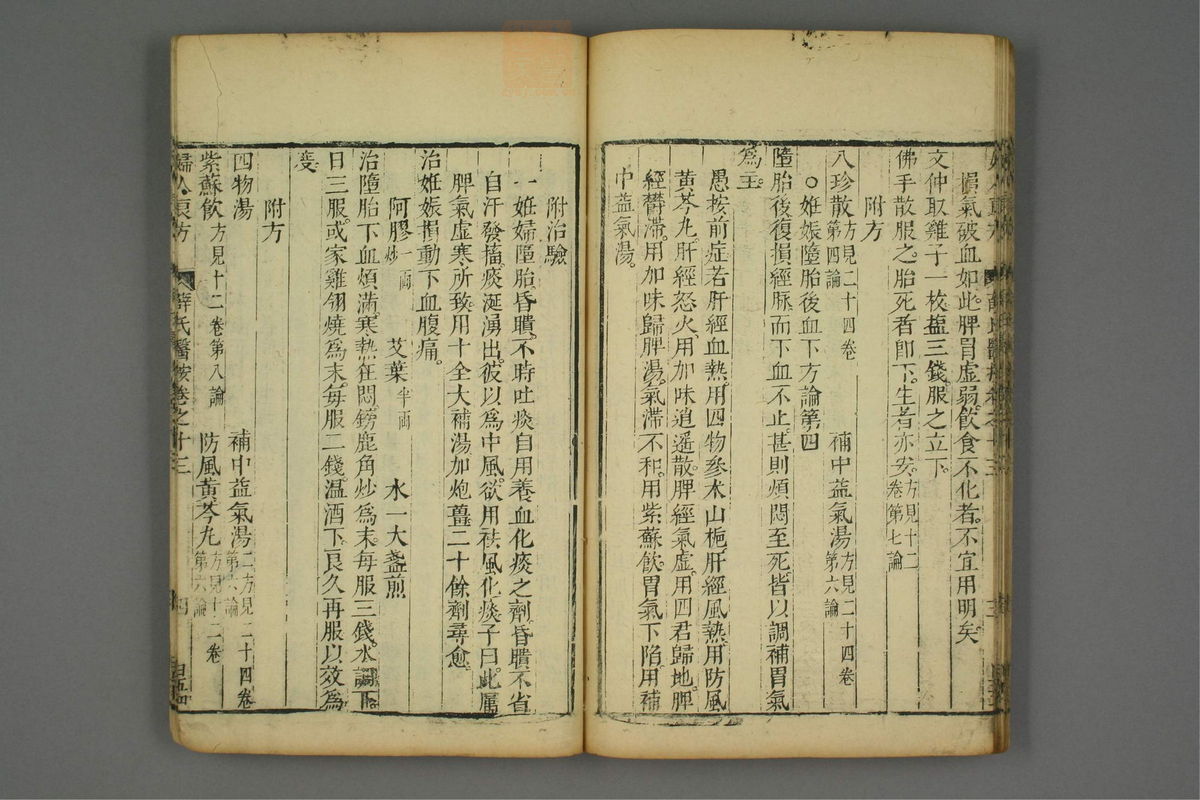 損氣破血如此脾胃虛弱飲食不化者不宜用明矣
文仲取雞子一枚鹽三錢服之立下
佛手散服之胎死者卽下生者亦安方見十二卷第七論
附方
八珍散方見二十四卷第四論
補中益氣湯方見二十四卷第六論
○妊娠墮胎後血下方論第四
墮胎後復損經脉而下血不止甚則煩悶至死皆以調補胃氣
爲主
愚按前症若肝經血熱用四物參朮山梔肝經風熱用防風
黃芩丸肝經怒火用加味逍遙散脾經氣虛用四君歸地脾
經鬱滯用加味歸脾湯氣滯不和用紫蘇飲胃氣下陷用補
中益氣湯
附治驗
一妊婦墮胎昏憒不時吐痰自用養血化痰之劑昏憒不省
自汗發搐痰涎湧出彼以爲中風欲用祛風化痰予曰此屬
脾氣虛寒所致用十全大補湯加炮薑二十餘劑尋愈
治妊娠損動下血腹痛
阿膠炒一兩
艾葉半兩
水一大盞煎
治墮胎下血煩滿寒熱狂悶鎊鹿角炒爲末每服三錢水調下
日三服或家雞翎燒爲末每服二錢溫酒下良久再服以效爲
度
附方
四物湯
補中益氣湯二方見二十四卷第六論
紫蘇飲方見十二卷第八論
防風黃芩丸方見十二卷第六論
婦人良方
薛氏醫按卷之十三